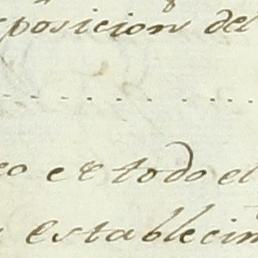 posicion del
o es todo el
establecim